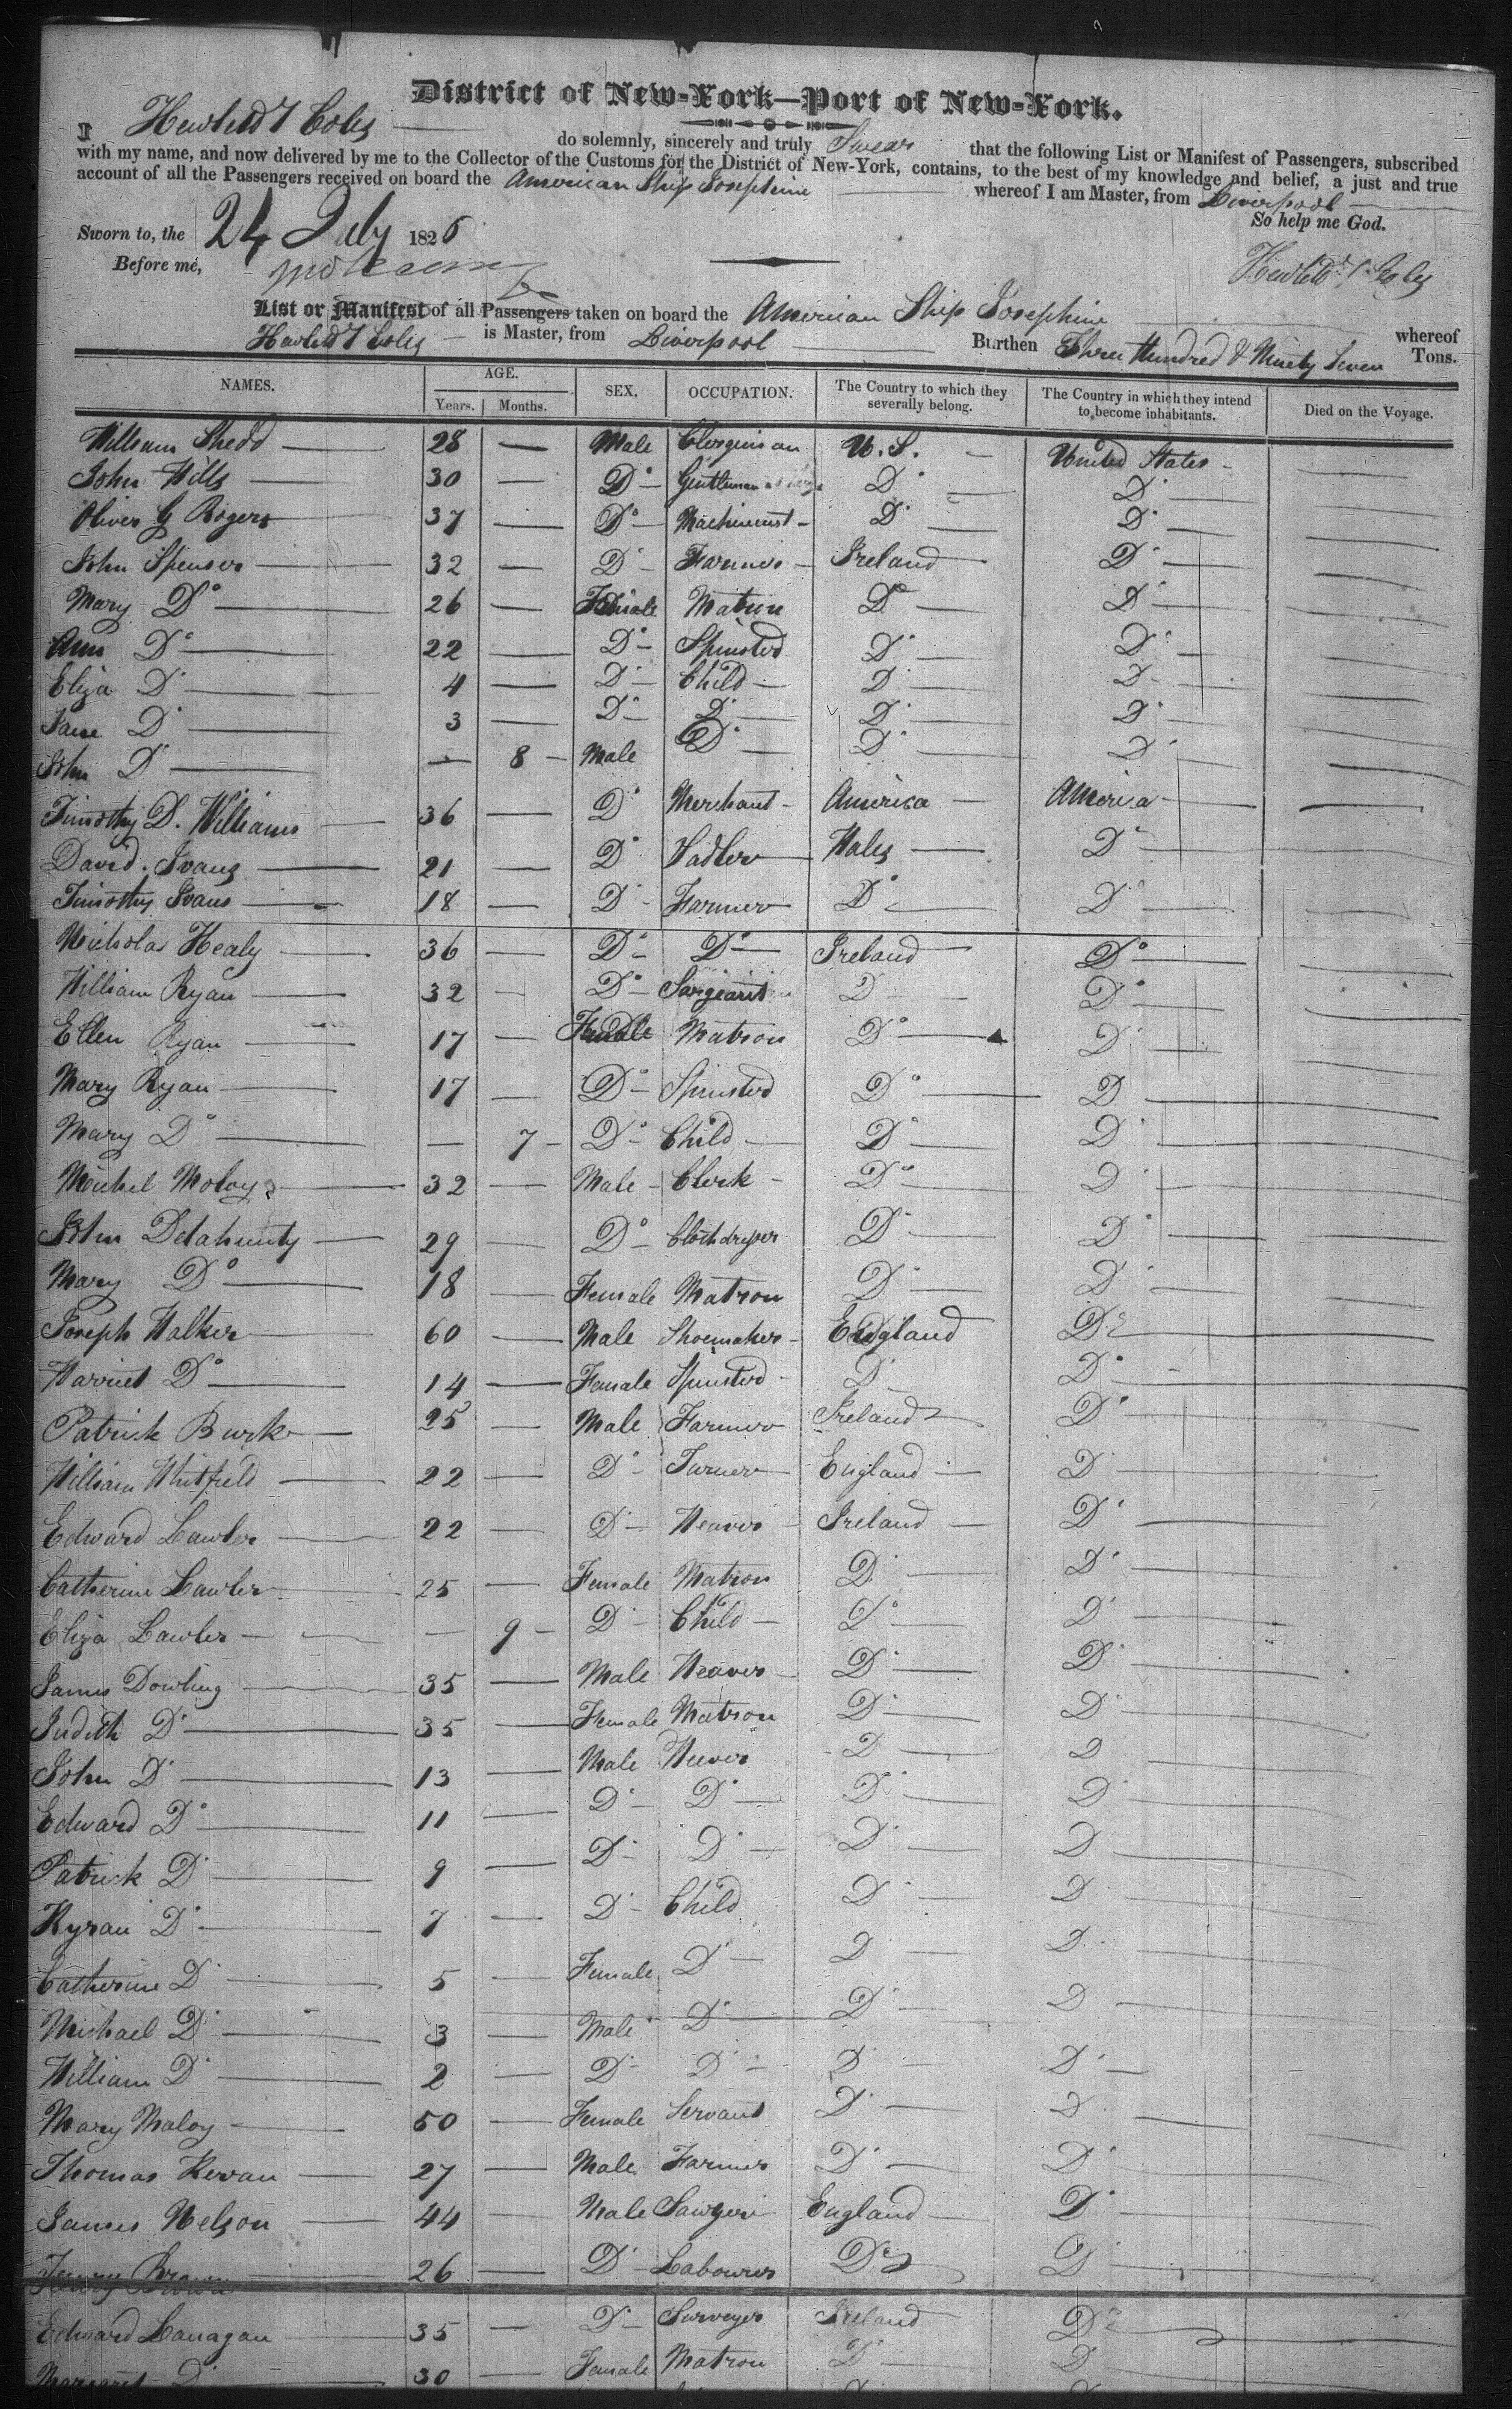 District of New-York—Port of New-York.
I Hewlett T Coles do solemnly, sincerely and truly Swear that the following List or Manifest of Passengers, subscribed
with my name, and now delivered by me to the Collector of the Customs for the District of New-York, contains, to the best of my knowledge and belief, a just and true
account of all the Passengers received on board the American Ship Josephine whereof I am Master, from Liverpool
So help me God.
Sworn to, the 24 July 1826
Before me,
Hewlett T Coles
List or Manifest of all Passengers taken on board the American Ship Josephine whereof
Hewlett T Coles is Master, from Liverpool Burthen Three Hundred & Ninety Seven Tons.
NAMES. AGE. SEX. OCCUPATION. The Country to which they severally belong. The Country in which they intend to become inhabitants. Died on the Voyage.
Years. Months.
William Shedd 28 — Male Clerguisan U.S. United States
John Wills 30 — Do Gentleman Do Do
Oliver G Rogers 37 — Do Machinist Do Do
John Spenser 32 — Do Farmer Ireland Do
Mary Do 26 — Female Matron Do Do
Ann Do 22 — Do Spinster Do Do
Eliza Do 4 — Do Child Do Do
Jane Do 3 — Do Do Do Do
John Do — 8 Male Do Do Do
Timothy D. Williams 36 — Do Merchant America America
David Ivans 21 — Do Sadler Wales Do
Timothy Ivans 18 — Do Farmer Do Do
Nicholas Healy 36 — Do Do Ireland Do
William Ryan 32 — Do Sargeant Do Do
Ellen Ryan 17 — Female Matron Do Do
Mary Ryan 17 — Do Spinster Do Do
Mary Do — 7 Do Child Do Do
Michel Moloy 32 — Male Clerk Do Do
John Delahunty 29 — Do Clothdresser Do Do
Mary Do 18 — Female Matron Do Do
Joseph Walker 60 — Male Shoemaker England Do
Harriet Do 14 — Female Spinster Do Do
Patrick Burk 25 — Male Farmer Ireland Do
William Whitfield 22 — Do Turner England Do
Edward Lawler 22 — Do Weaver Ireland Do
Catherine Lawler 25 — Female Matron Do Do
Eliza Lawler — 9 Do Child Do Do
James Dowling 35 — Male Weaver Do Do
Judith Do 35 — Female Matron Do Do
John Do 13 — Male Weever Do Do
Edward Do 11 — Do Do Do Do
Patrick Do 9 — Do Do Do Do
Kyran Do 7 — Do Child Do Do
Catherine Do 5 — Female Do Do Do
Michael Do 3 — Male Do Do Do
William Do 2 — Do Do Do Do
Mary Maloy 50 — Female Servant Do Do
Thomas Kevan 27 — Male Farmer Do Do
James Nelson 44 — Male Sawyer England Do
Henry Brown 26 — Do Labourer Do Do
Edward Lanagan 35 — Do Surveyor Ireland Do
Margaret Do 30 — Female Matron Do Do